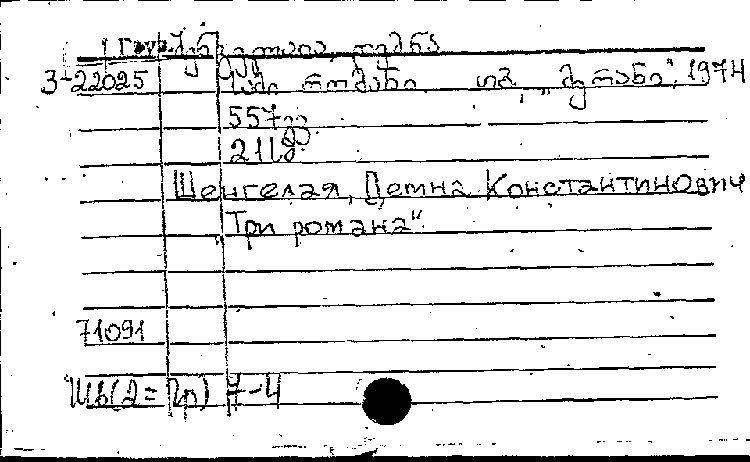 1 Груз. შენგელაია, დემნა
3-22025 სამი რომანი. თბ, „მერანი“, 1974
557 გვ
211
Шенгелая, Демна Константинович
„Три романа“.
71091
Шв(2=Гр) 7-4